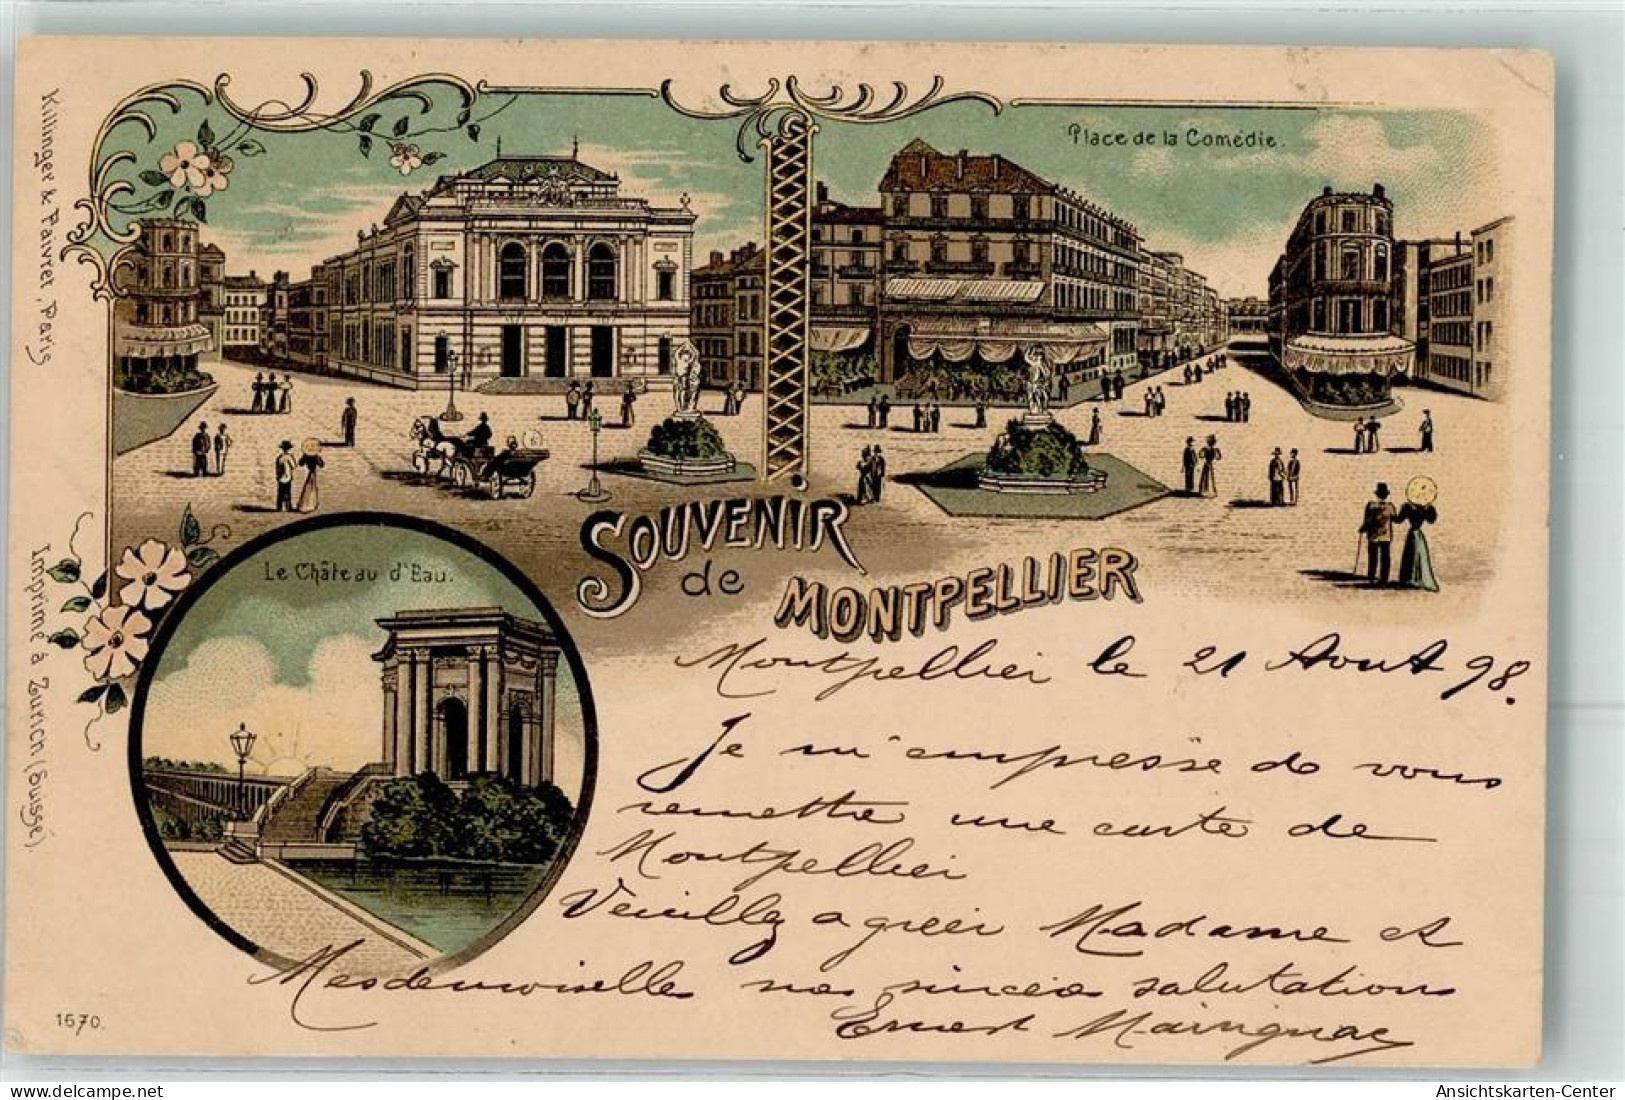 Killinger & Faivret, Paris
Imprimé à Zurich (Suisse).
Place de la Comédie.
SOUVENIR
de MONTPELLIER
Le Château d'Eau.
Montpellier le 21 Aout 98.
Je m'empresse de vous
remettre une carte de
Montpellier
Veuillez agréér Madame et
Mesdemoiselles nos sincères salutations
Ernest
1670.
Ansichtskarten-Center